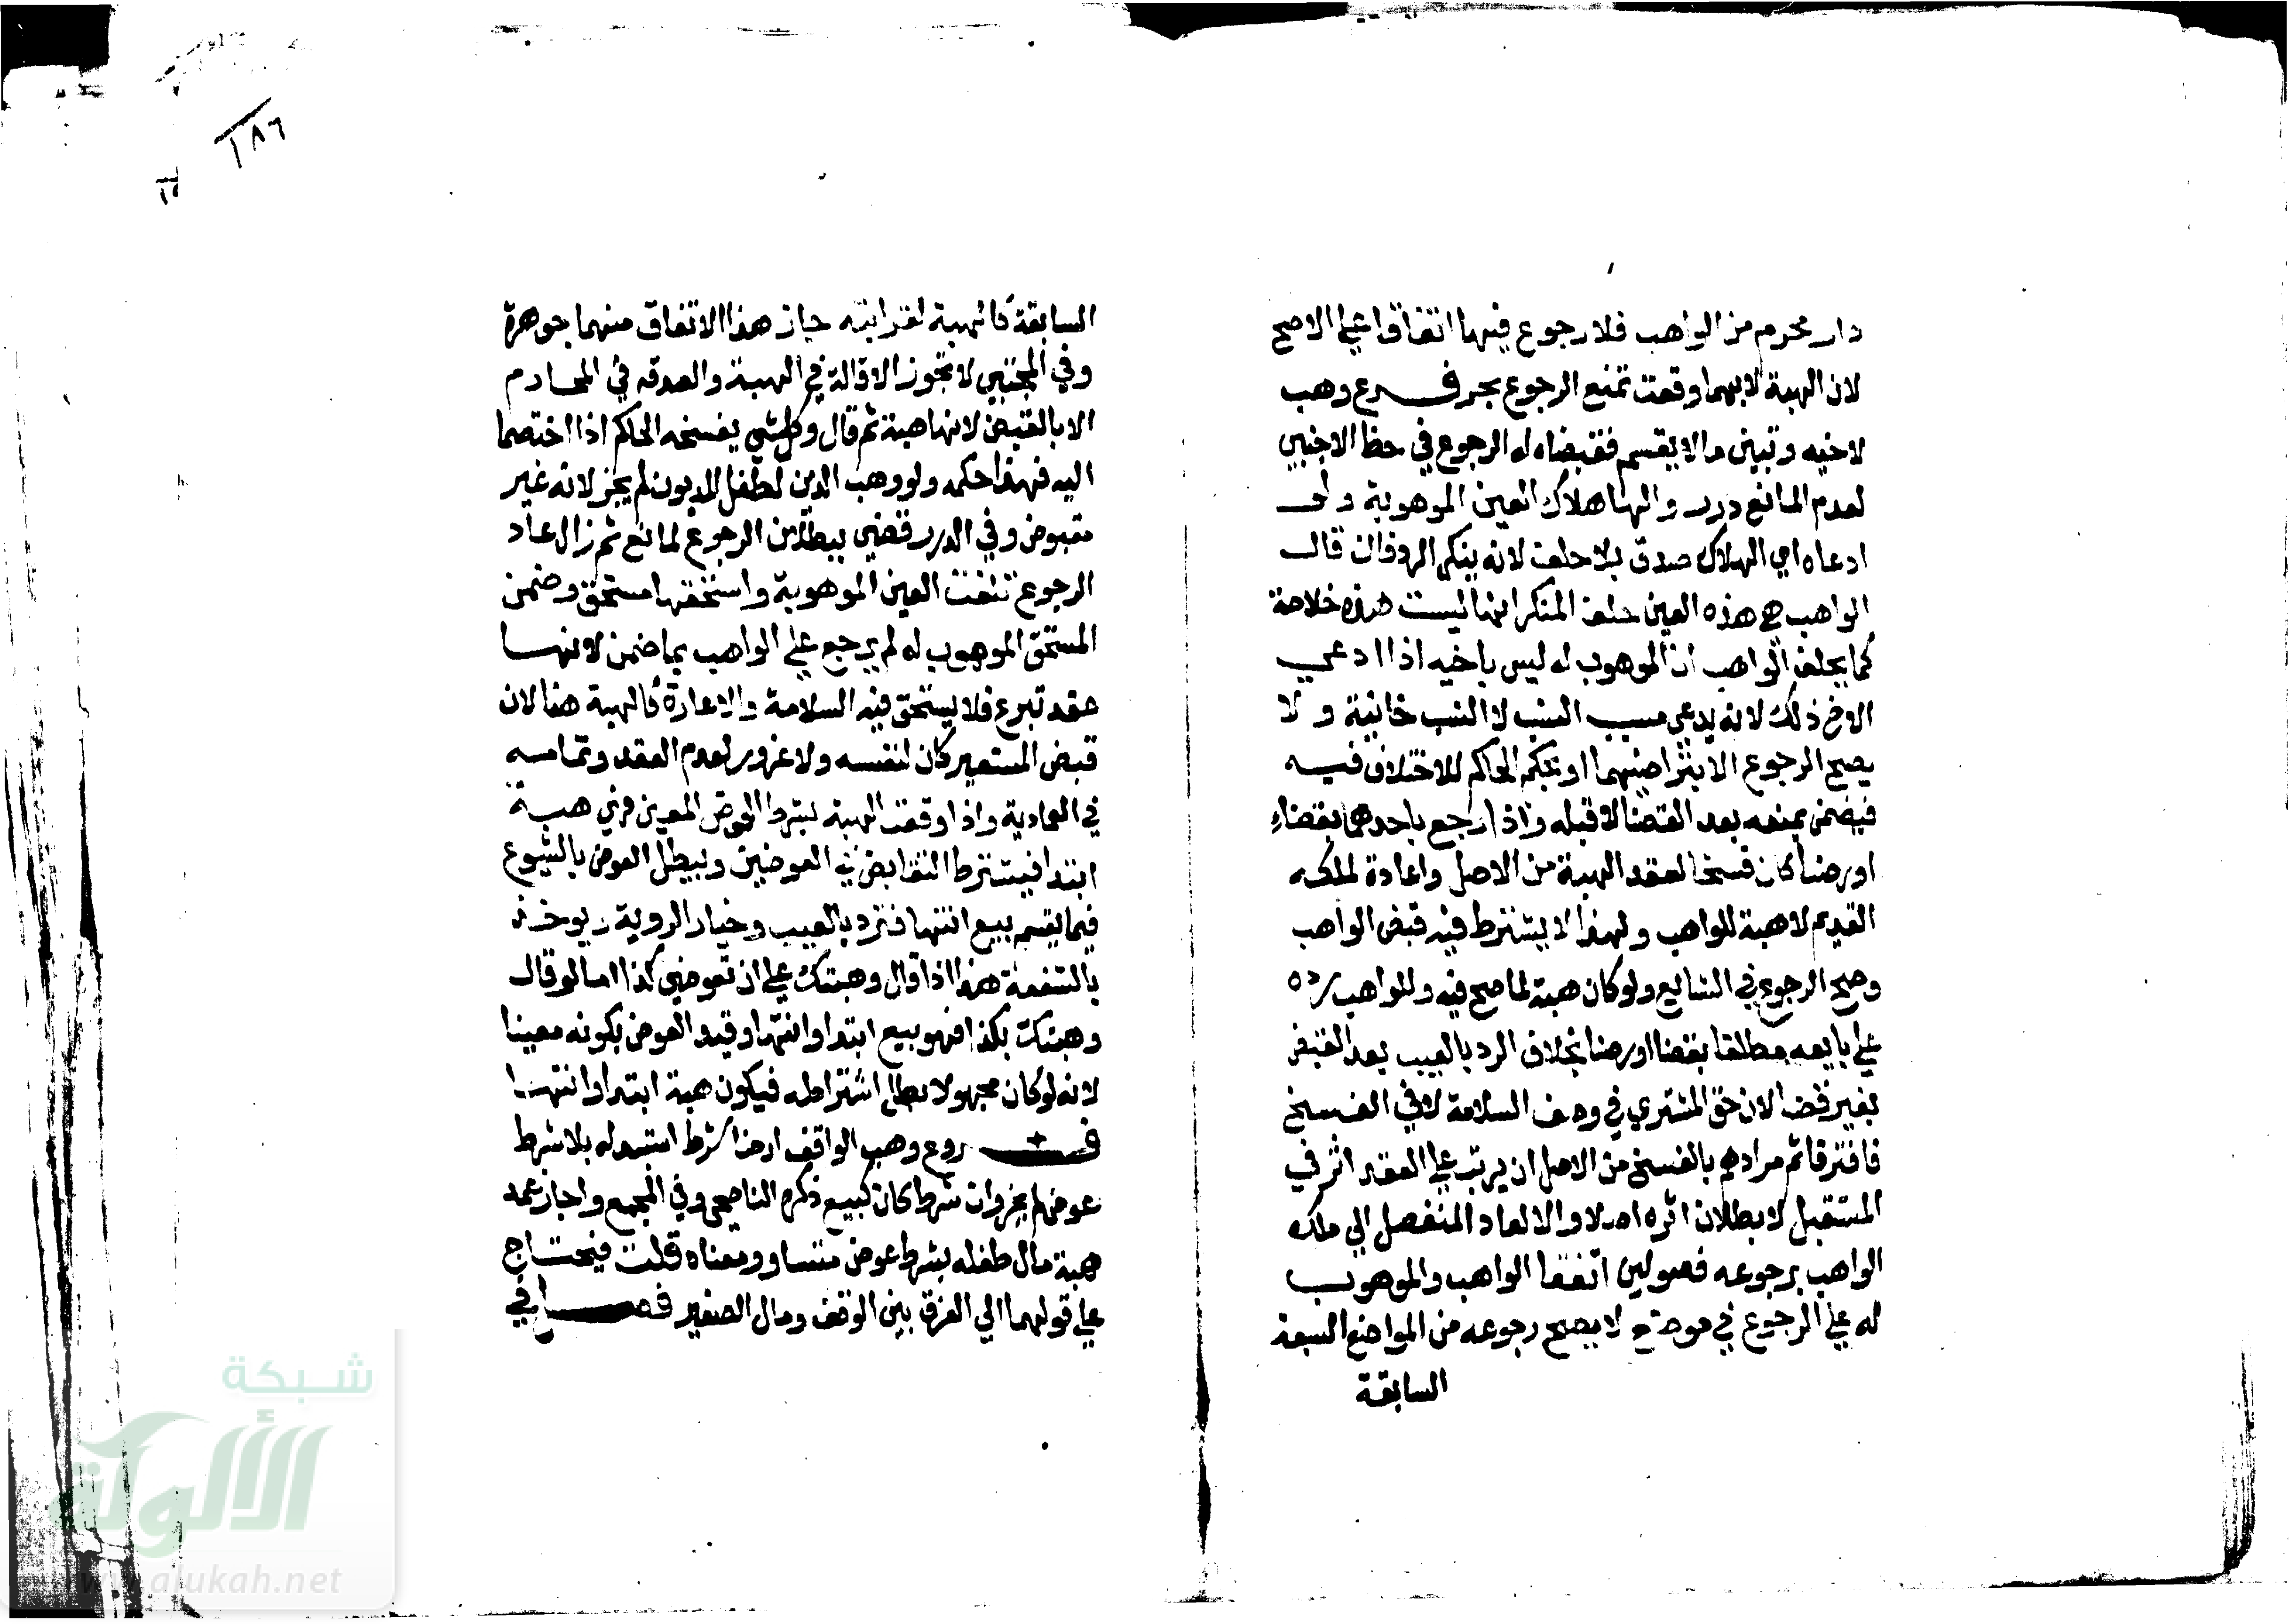 دار محرم من الواهب فلا رجوع فيها اتفاقا علي الاصح
لان الهبة لايهما وقعت تمنع الرجوع بحر فرع وهب
لاخيه و مالا يقسم فقبضاه له الرجوع في حظ الاجنبي
لعدم المانع درر والهاء هلاك العين الموهوبة ولو
ادعاه اي الهلاك صدق بلا حلف لانه ينكر الرد فان قال
الواهب هي هذه العين حلف المنكر انها ليست هذه خلاصة
كما يحلف الواهب ان الموهوب له ليس باخيه اذا ادعي
الاخ ذلك لانه يدعي مسبب النسب لا النسب خانية ولا
يصح الرجوع الا بتراضيهما او بحكم الحاكم للاختلاف فيه
فيضمن بمنعه بعد القضا لا قبله واذا رجع باحدهما بقضاء
او رضا كان فسخا لعقد الهبة من الاصل واعادة لملكه
القديم لا هبة للواهب ولهذا لا يشترط فيه قبض الواهب
وصح الرجوع في الشايع ولو كان هبة لما صح فيه وللواهب رده
علي بايعه مطلقا بقضا او رضا بخلاف الرد بالعيب بعد القبض
بغير قضا لان حق المشتري في وصف السلامة لا في الفسخ
فافترقا ثم مرادهم بالفسخ من الاصل ان يرتب علي العقد اثر في
المستقبل لا بطلان اثره اصلا والا لعاد المنفصل الي ملك
الواهب برجوعه فصولين اتفقا الواهب والموهوب
له علي الرجوع في موضع لا يصح رجوعه من المواضع السبعة
السابقة
السابقة كالهبة لقرابته جاز هذا الاتفاق منهما جوهرة
وفي المجتبي لا تجوز الاقالة في الهبة والصدقه في المحارم
الا بالقبض لانها هبة ثم قال وكل شي يفسخه الحاكم اذا اختصما
اليه فهذا حكمه ولو وهب الدين لطفل المديون لم يجز لانه غير
مقبوض وفي الدرر قضي ببطلان الرجوع لمانع ثم زال عاد
الرجوع تلفت العين الموهوبة واستحقها مستحق وضمن
المستحق الموهوب له لم يرجع علي الواهب بما ضمن لانها
عقد تبرع فلا يستحق فيه السلامة والاعارة كالهبة هنا لان
قبض المستعير كان لنفسه ولا غرور لعدم العقد وتمامه
في العمادية واذا وقعت الهبة بشرط العوض المعين فهي هبة
ابتدا فيشترط التقابض في العوضين ويبطل العوض بالشيوع
فيما يقسم بيع انتها فترد بالعيب وخيار الروية ويوخذ
بالشفعة هذا اذا قال وهبتك علي ان تعوضني كذا اما لو قال
وهبتك بكذا فهو بيع ابتدا وانتها وقيد العوض بكونه معينا
لانه لو كان مجهولا بطل اشتراطه فيكون هبة ابتدا وانتها
فروع وهب الواقف ارضا شرط استبداله بلا شرط
عوض لم يجز وان شرط كان كبيع ذكره الناصحي وفي المجمع واجاز محمد
هبة مال طفله بشرط عوض متساو ومنعاه قلت فيحتاج
علي قولهما الي الفرق بين الوقف ومال الصغير فصل في
١٨٦
شبكة
الألوكة
www.alukah.net